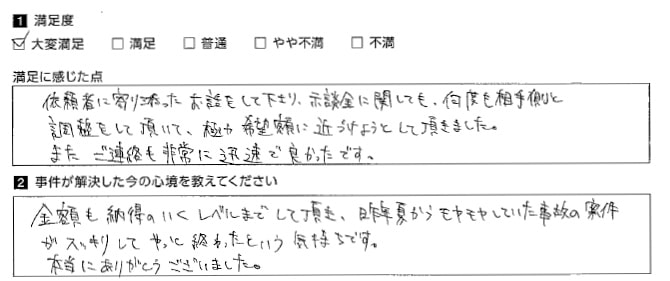 1 満足度
☑ 大変満足 □ 満足 □ 普通 □ やや不満 □ 不満
満足に感じた点
依頼者に寄り添ったお話をして下さり、示談金に関しても、何度も相手側と
調整をして頂いて、極力希望額に近づけようとして頂きました。
また ご連絡も非常に迅速で良かったです。
2 事件が解決した今の心境を教えてください
金額も納得のいくレベルまでして頂き、昨年夏からモヤモヤしていた事故の案件
がスッキリして やっと終わったという気持ちです。
本当にありがとうございました。